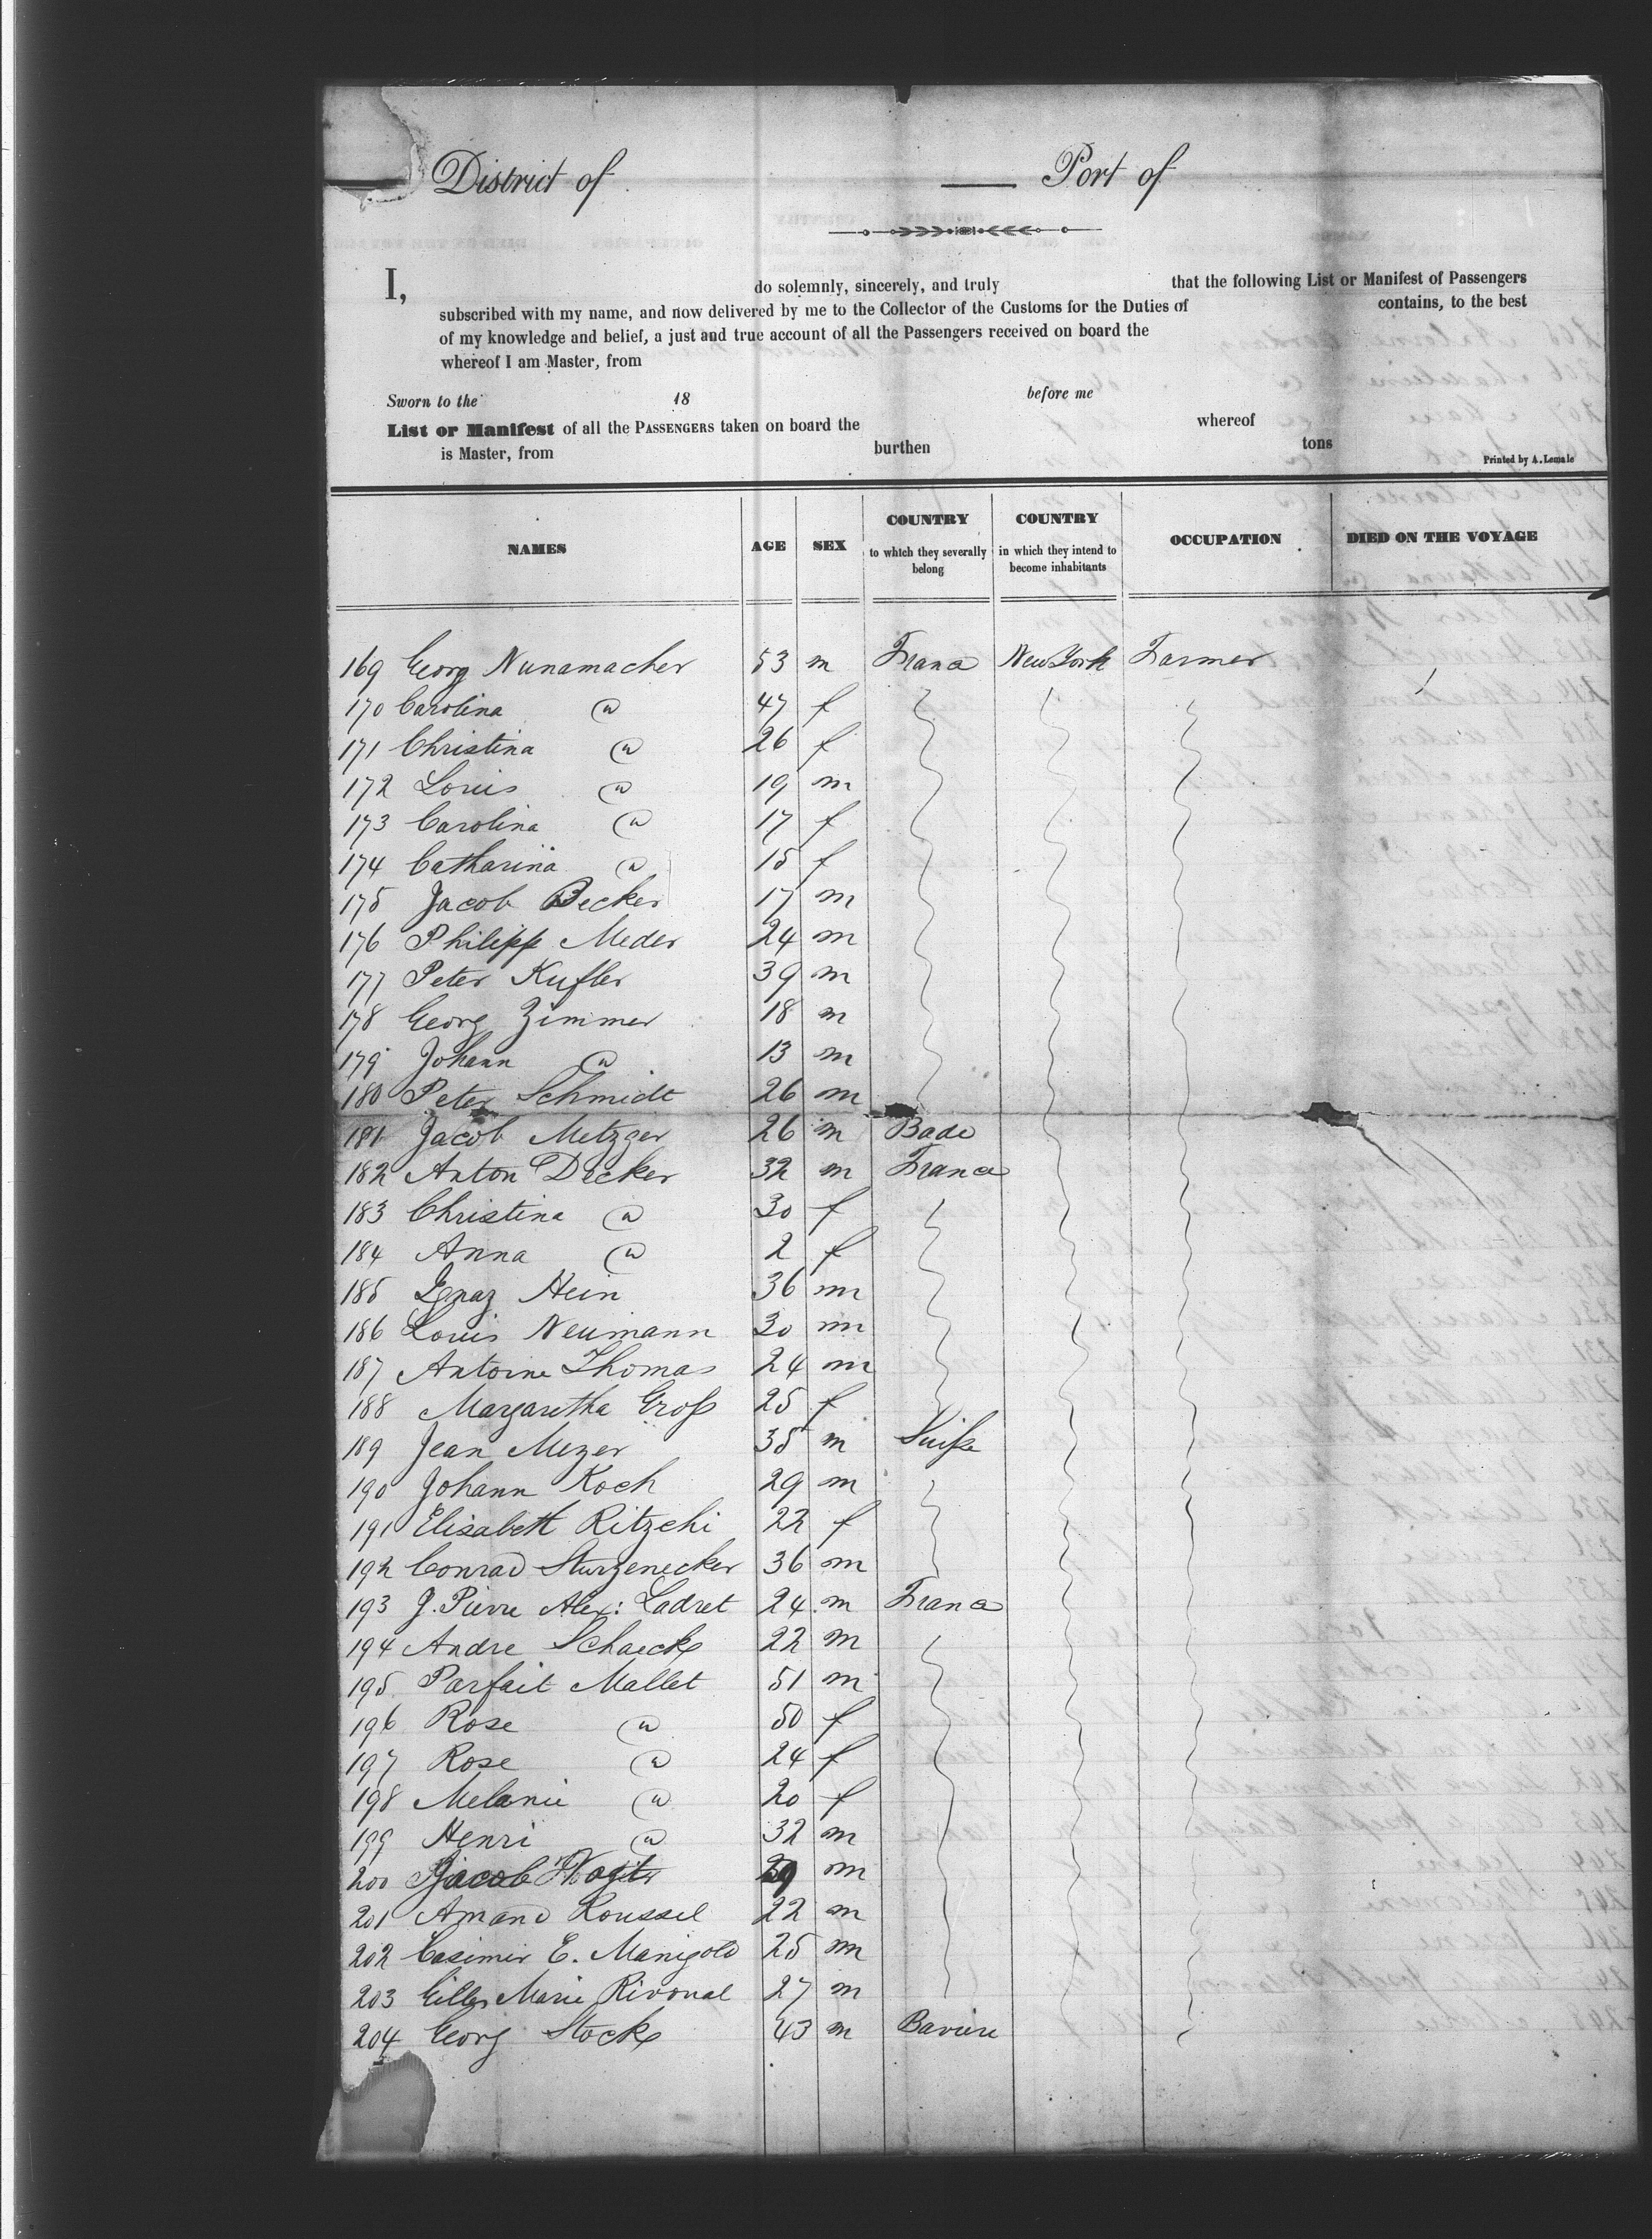 District of
Port of
I, do solemnly, sincerely, and truly that the following List or Manifest of Passengers
subscribed with my name, and now delivered by me to the Collector of the Customs for the Duties of contains, to the best
of my knowledge and belief, a just and true account of all the Passengers received on board the
whereof I am Master, from
Sworn to the 18 before me
List or Manifest of all the PASSENGERS taken on board the whereof
is Master, from burthen tons
Printed by A. Lemale
NAMES AGE SEX COUNTRY to which they severally belong COUNTRY in which they intend to become inhabitants OCCUPATION DIED ON THE VOYAGE
169 Georg Nunamacher 53 m France New York Farmer
170 Carolina @ 47 f
171 Christina @ 26 f
172 Louis @ 19 m
173 Carolina @ 17 f
174 Catharina @ 15 f
175 Jacob Becker 17 m
176 Philipp Meder 24 m
177 Peter Kufler 39 m
178 Georg Zimmer 18 m
179 Johann @ 13 m
180 Peter Schmidt 26 m
181 Jacob Metzger 26 m Bade
182 Anton Decker 32 m France
183 Christina @ 30 f
184 Anna @ 2 f
185 Ignaz Hein 36 m
186 Louis Neumann 30 m
187 Antoine Thomas 24 m
188 Margaretha Groß 25 f
189 Jean Mezer 35 m Suiße
190 Johann Koch 29 m
191 Elisabeth Ritzchi 22 f
192 Conrad Sturzenecker 36 m
193 J. Pierre Alex: Ladret 24 m France
194 Andre Schaeck 22 m
195 Parfait Mallet 51 m
196 Rose @ 50 f
197 Rose @ 24 f
198 Melanie @ 20 f
199 Henri @ 32 m
200 Jacob m
201 Amand Roussel 22 m
202 Casimir E. Manigold 25 m
203 Gilles Marie Rivonal 27 m
204 Georg Stock 43 m Baviere